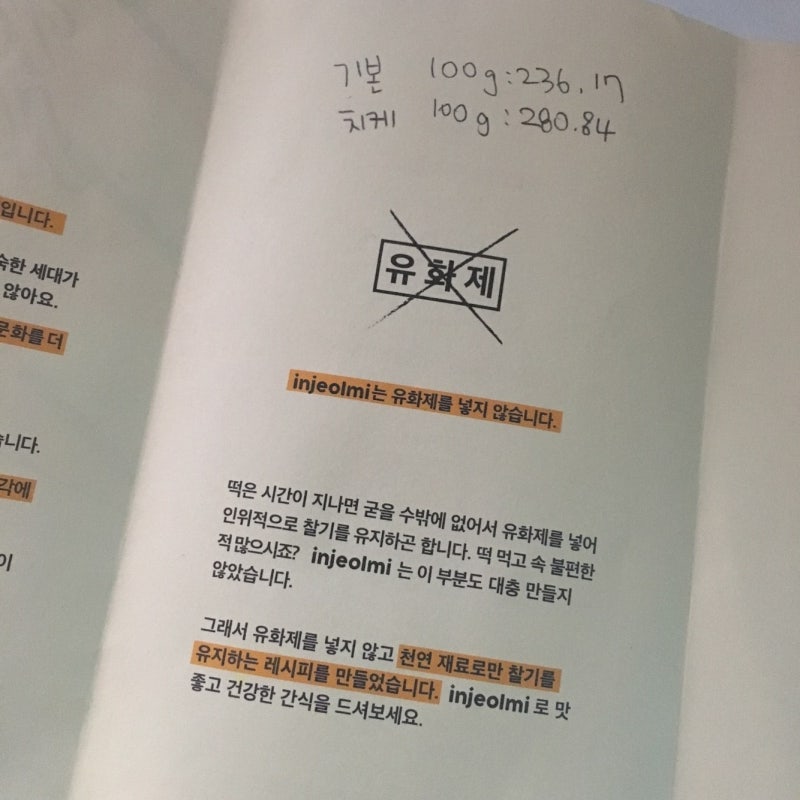 기본 100g:236.17
치케 100g:280.84
유화제
injeolmi는 유화제를 넣지 않습니다.
떡은 시간이 지나면 굳을 수밖에 없어서 유화제를 넣어
인위적으로 찰기를 유지하곤 합니다. 떡 먹고 속 불편한
적 많으시죠? injeolmi 는 이 부분도 대충 만들지
않았습니다.
그래서 유화제를 넣지 않고 천연 재료로만 찰기를
유지하는 레시피를 만들었습니다. injeolmi 로 맛
좋고 건강한 간식을 드셔보세요.
입니다.
숙한 세대가
않아요.
문화를 더
습니다.
각에
이